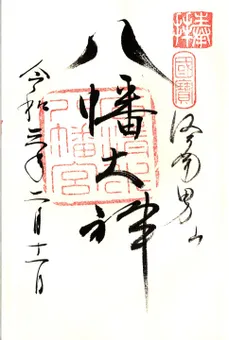 奉拝
國寶
洛南男山
八幡大神
八幡宮
令和三年二月十一日